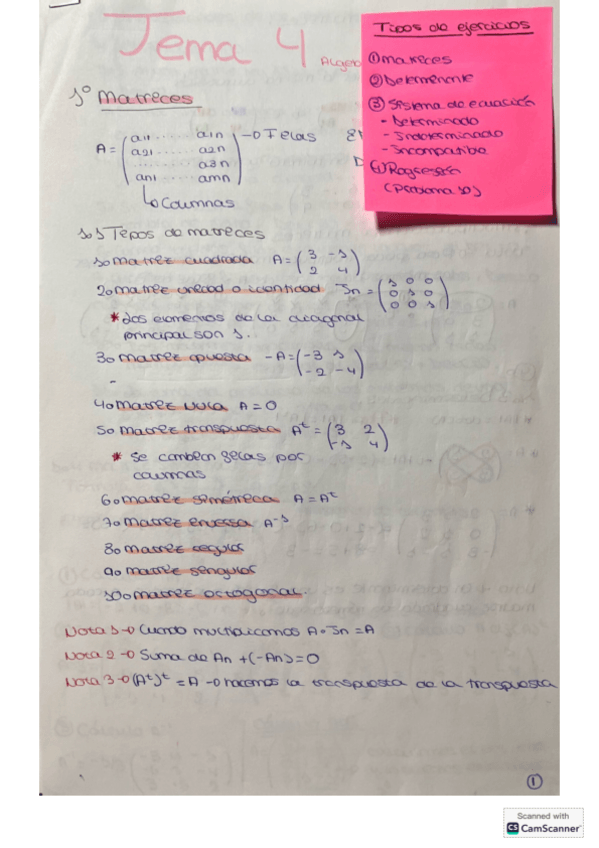 Tema 4
Tipos de ejercicios
① matrices
② Determinante
③ Sistema de ecuación
- Determinado
- Indeterminado
- Incompatible
④ Regresión
(Problema 10)
1º Matrices
A = (a11 ...... a1n
a21 ...... a2n
...... a3n
an1 ...... amn) → Filas
↳ Columnas
1.1 Tipos de matrices
1. matriz cuadrada A = (3 -1
2 4)
2. matriz unidad o identidad In = (1 0 0
0 1 0
0 0 1)
* los elementos de la diagonal
principal son 1.
3. matriz opuesta -A = (-3 1
-2 -4)
4. matriz nula A = 0
5. matriz transpuesta Aᵗ = (3 2
-1 4)
* Se cambian filas por
columnas
6. matriz simétrica A = Aᵗ
7. matriz inversa A⁻¹
8. matriz regular
9. matriz singular
10. matriz octogonal.
Nota 1 → Cuando multiplicamos A · In = A
Nota 2 → Suma de An + (-An) = 0
Nota 3 → (Aᵗ)ᵗ = A → hacemos la transpuesta de la transpuesta
①
Scanned with
CS CamScanner